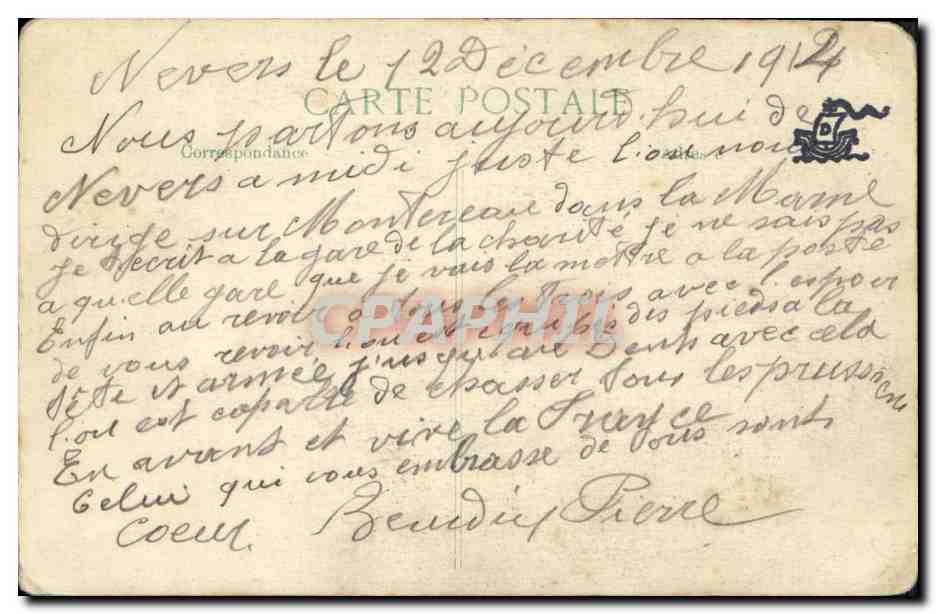 Nevers le 12 Decembre 1914
CARTE POSTALE
Nous partons aujourd hui de
Correspondance
Nevers a midi juste l'on nous
dirige sur Montereau dans la Marne
je t'ecrit a la gare de la charité je ne sais pas
a qu'elle gare que je vais la mettre a la poste
Enfin au revoir a tous les trois avec l'espoir
CPAPHIL
de vous revoir l'on et equipé des pieds a la
tête et armée jusqu'au Dents avec cela
l'on est capable de chasser tous les prussiens
En avant et vive la France
Celui qui vous embrasse de tous
Coeur Pierre